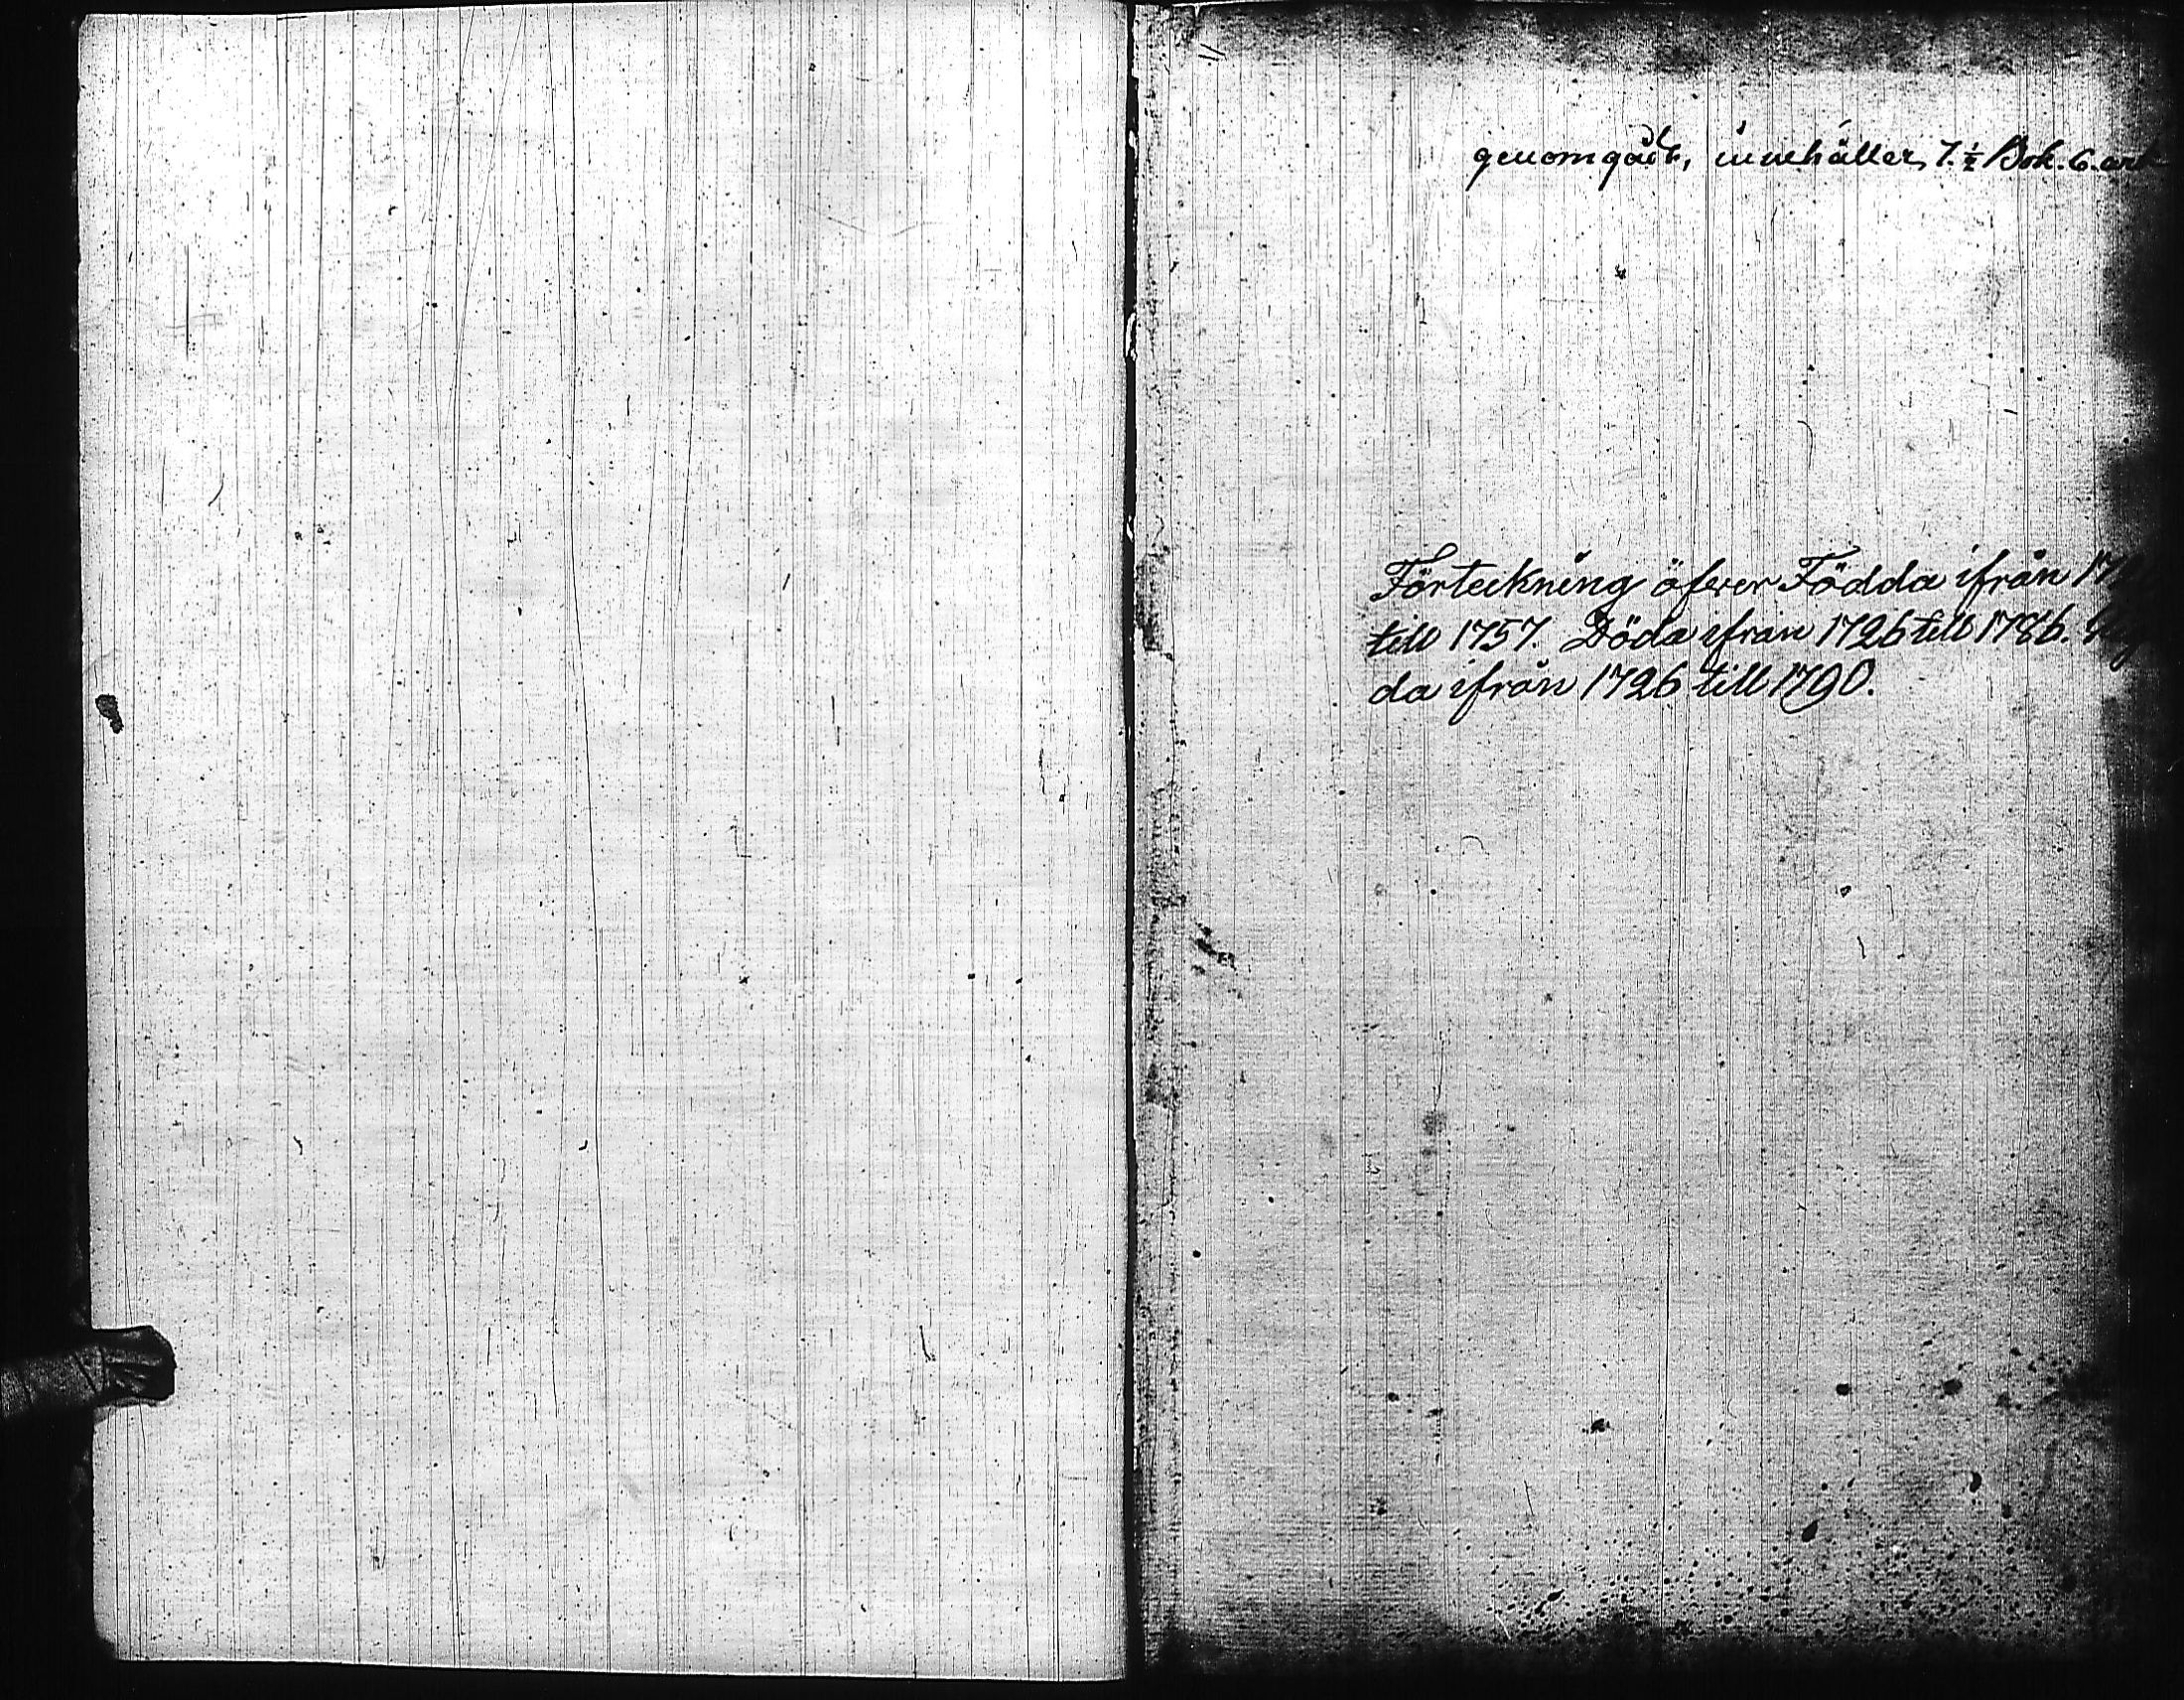 genomgådt, innehåller 7. ½ Bok. 6. ark
Förteckning öfver Födda ifrån
till 1757. Döda ifrån 1726 till 1786.
da ifrån 1726 till 1790.